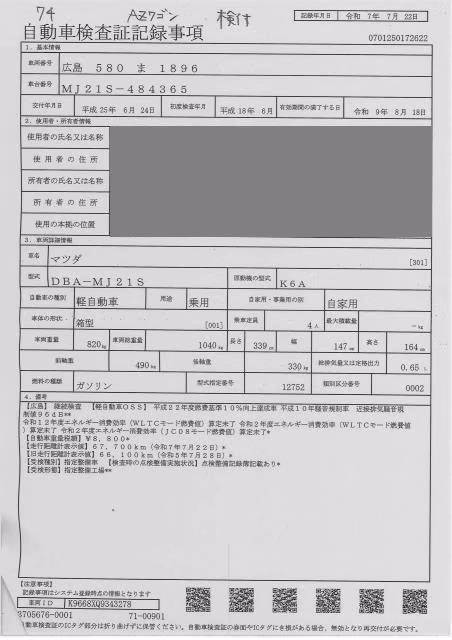 74 AZワゴン 検付
記録年月日 令和 7年 7月 22日
自動車検査証記録事項
0701250172622
1. 基本情報
車両番号 広島 580 ま 1896
車台番号 MJ21S-484365
交付年月日 平成25年 6月 24日 初度検査年月 平成18年 6月 有効期間の満了する日 令和 9年 8月 18日
2. 使用者・所有者情報
使用者の氏名又は名称
使用者の住所
所有者の氏名又は名称
所有者の住所
使用の本拠の位置
3. 車両詳細情報
車名 マツダ [301]
型式 DBA-MJ21S 原動機の型式 K6A
自動車の種別 軽自動車 用途 乗用 自家用・事業用の別 自家用
車体の形状 箱型 [001] 乗車定員 4人 最大積載量 -kg
車両重量 820kg 車両総重量 1040kg 長さ 339cm 幅 147cm 高さ 164cm
前軸重 490kg 後軸重 330kg 総排気量又は定格出力 0.65L
燃料の種類 ガソリン 型式指定番号 12752 類別区分番号 0002
4. 備考
【広島】 継続検査 【軽自動車OSS】 平成22年度燃費基準10%向上達成車 平成10年騒音規制車 近接排気騒音規
制値96dB**
令和12年度エネルギー消費効率(WLTCモード燃費値)算定未了 令和2年度エネルギー消費効率(WLTCモード燃費値
)算定未了 令和2年度エネルギー消費効率(JC08モード燃費値)算定未了*
【自動車重量税額】¥8,800*
【走行距離計表示値】67,700km(令和7年7月22日)*
【旧走行距離計表示値】66,100km(令和5年7月28日)*
【受検種別】指定整備車 【検査時の点検整備実施状況】点検整備記録簿記載あり*
【受検形態】指定整備工場**
【注意事項】
記録事項はシステム登録時点の情報となります
車両ID K9668XQ9343278
3705676-0001 71-00901
自動車検査証のICタグ部分は折り曲げずに保管ください。自動車検査証の券面やICタグにき損がある場合、無効となり再交付が必要です。